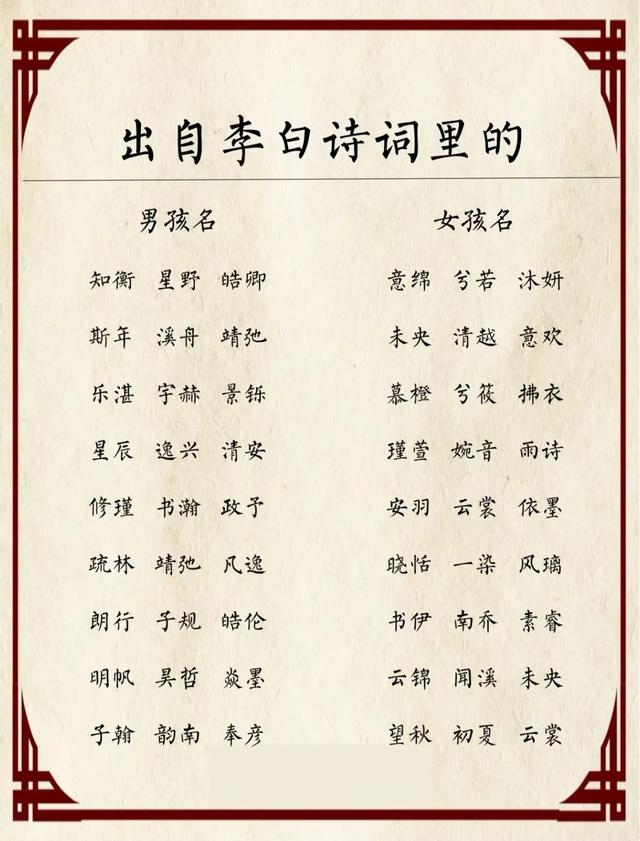 出自李白诗词里的
男孩名 女孩名
知衡 星野 皓卿 意绵 兮若 沐妍
斯年 溪舟 靖弛 未央 清越 意欢
乐湛 宇赫 景铄 慕橙 兮筱 拂衣
星辰 逸兴 清安 瑾萱 婉音 雨诗
修瑾 书瀚 政予 安羽 云裳 依墨
疏林 靖弛 凡逸 晓恬 一染 风璃
朗行 子规 皓伦 书伊 南乔 素睿
明帆 昊哲 焱墨 云锦 闻溪 未央
子翰 韵南 奉彦 望秋 初夏 云裳